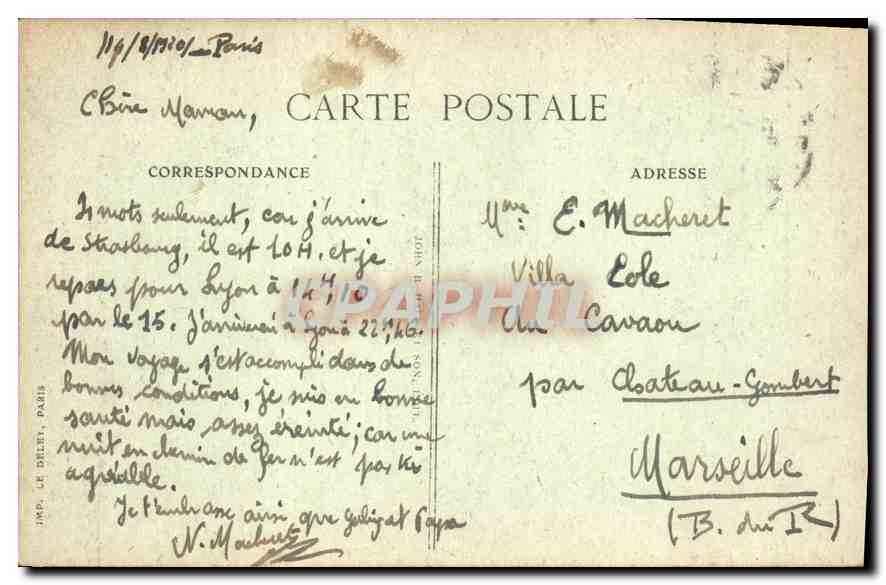 Paris
Chère Maman,
CARTE POSTALE
CORRESPONDANCE
ADRESSE
mots seulement, car j'arrive
de Strasbourg, il est 10 H. et je
repars pour Lyon à 14H,10
par le 15. J'arriverai à Lyon à 22H,46.
Mon voyage s'est accompli dans de
bonnes conditions, je suis en bonne
santé mais assez éreinté; car une
nuit en chemin de fer n'est pas très
agréable.
Je t'embrasse ainsi que et Papa
N. Macheret
Mme: E. Macheret
Villa Eole
Au Cavaou
par Chateau-Gombert
Marseille
(B. du R)
IMP. LE DELEY, PARIS
CPAPHIL